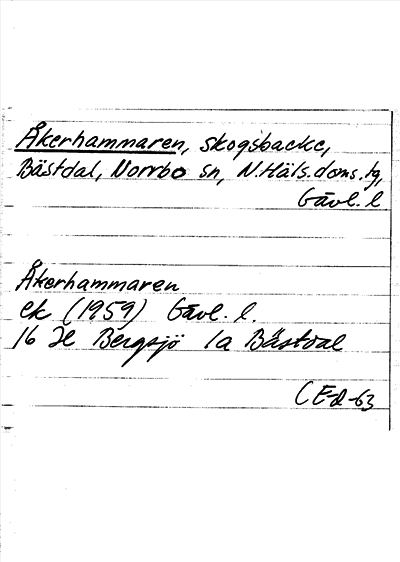 Åkerhammaren, skogsbacke,
Bästdal, Norrbo sn, N.Häls.doms.tg,
Gävl. l
Åkerhammaren
ek (1959) Gävl. l.
16 H Bergsjö 1a Bästdal
CE-d-63